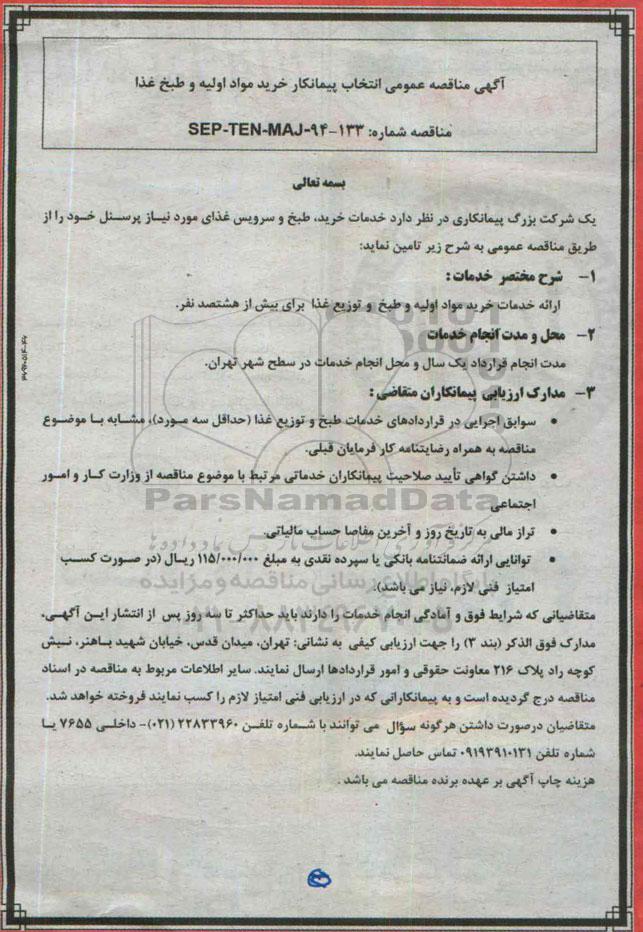 آگهی مناقصه عمومی انتخاب پیمانکار خرید مواد اولیه و طبخ غذا
مناقصه شماره: SEP-TEN-MAJ-۹۴-۱۳۳
بسمه تعالی
یک شرکت بزرگ پیمانکاری در نظر دارد خدمات خرید، طبخ و سرویس غذای مورد نیاز پرسنل خود را از
طریق مناقصه عمومی به شرح زیر تامین نماید:
۱- شرح مختصر خدمات:
ارائه خدمات خرید مواد اولیه و طبخ و توزیع غذا برای بیش از هشتصد نفر.
۲- محل و مدت انجام خدمات
مدت انجام قرارداد یک سال و محل انجام خدمات در سطح شهر تهران.
۳- مدارک ارزیابی پیمانکاران متقاضی:
• سوابق اجرایی در قراردادهای خدمات طبخ و توزیع غذا (حداقل سه مورد)، مشابه با موضوع
مناقصه به همراه رضایتنامه کار فرمایان قبلی.
• داشتن گواهی تأیید صلاحیت پیمانکاران خدماتی مرتبط با موضوع مناقصه از وزارت کار و امور
اجتماعی
• تراز مالی به تاریخ روز و آخرین مفاصا حساب مالیاتی.
• توانایی ارائه ضمانتنامه بانکی یا سپرده نقدی به مبلغ ۱۱۵/۰۰۰/۰۰۰ ریال (در صورت کسب
امتیاز فنی لازم، نیاز می باشد).
متقاضیانی که شرایط فوق و آمادگی انجام خدمات را دارند باید حداکثر تا سه روز پس از انتشار این آگهی،
مدارک فوق الذکر (بند ۳) را جهت ارزیابی کیفی به نشانی: تهران، میدان قدس، خیابان شهید باهنر، نبش
کوچه راد پلاک ۲۱۶ معاونت حقوقی و امور قراردادها ارسال نمایند. سایر اطلاعات مربوط به مناقصه در اسناد
مناقصه درج گردیده است و به پیمانکارانی که در ارزیابی فنی امتیاز لازم را کسب نمایند فروخته خواهد شد.
متقاضیان درصورت داشتن هرگونه سؤال می توانند با شماره تلفن ۲۲۸۳۳۹۶۰ (۰۲۱)- داخلی ۷۶۵۵ یا
شماره تلفن ۰۹۱۹۳۹۱۰۱۳۱ تماس حاصل نمایند.
هزینه چاپ آگهی بر عهده برنده مناقصه می باشد .
ParsNamadData
پایگاه اطلاع رسانی مناقصه و مزایده